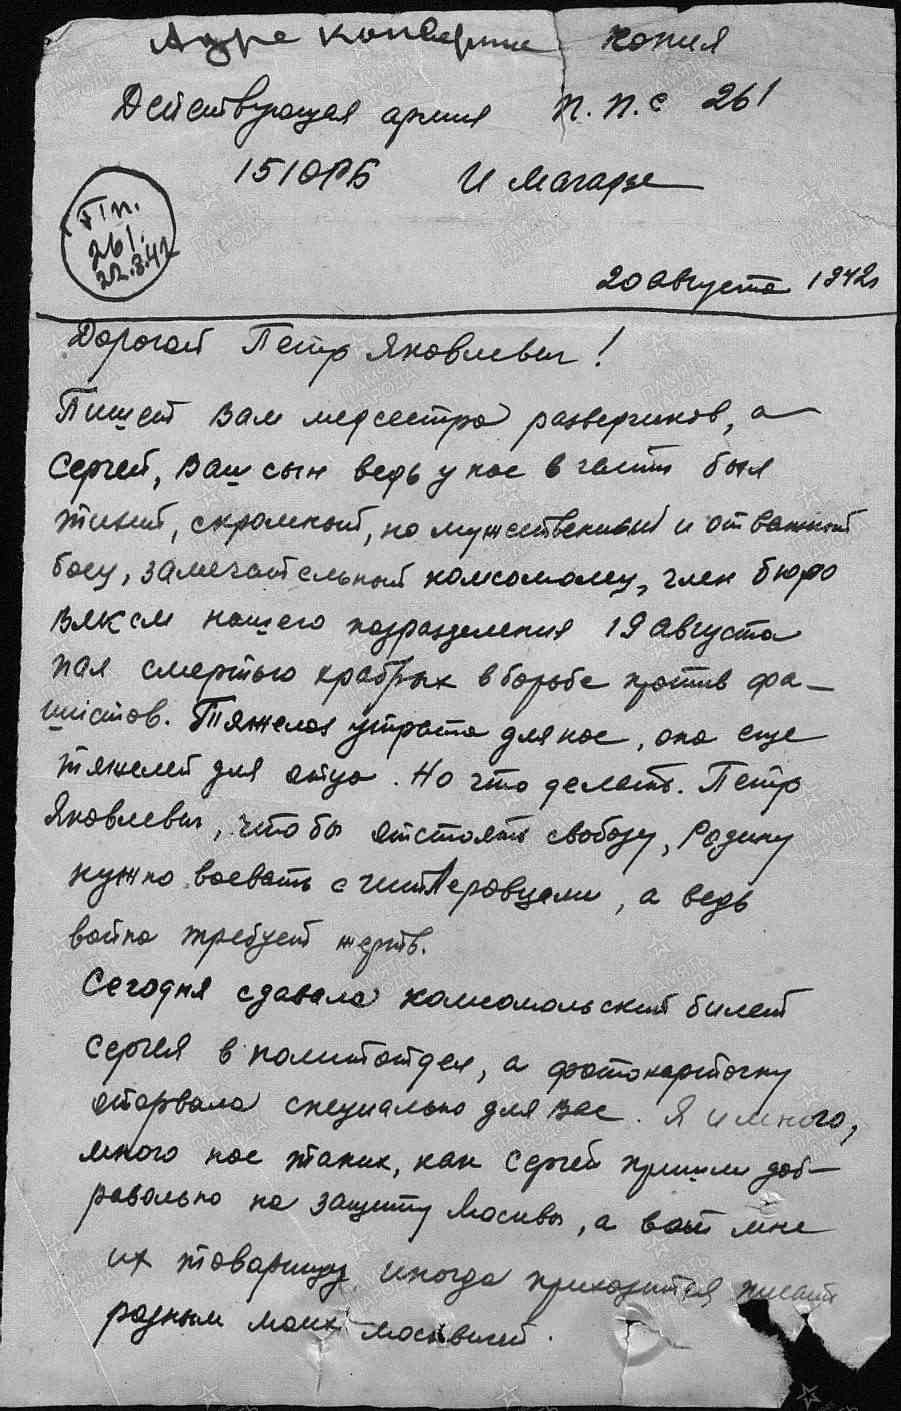 Адре конверте Копия
Действующая армия П.П.С 261
151 ОРБ И Магарде
П.
261.
22.8.42
20 августа 1942
Дорогой Петр Яковлевич!
Пишет Вам медсестра разведчиков, а
Сергей, Ваш сын ведь у нас в части был
тихий, скромный, но мужественный и отважный
боец, замечательный комсомолец, член бюро
ВЛКСМ нашего подразделения 19 августа
пал смертью храбрых в борьбе против фа-
шистов. Тяжелая утрата для нас, она еще
тяжелей для отца. Но что делать. Петр
Яковлевич, чтобы отстоять свободу, Родину
нужно воевать с гитлеровцами, а ведь
война требует жертв.
Сегодня сдавала комсомольский билет
Сергея в политотдел, а фотокарточку
оторвала специально для Вас. Я и много,
много нас таких, как Сергей пришли доб-
равольно на защиту Москвы, а вот мне
их товарищу иногда приходится писать
родным моих москвичей.